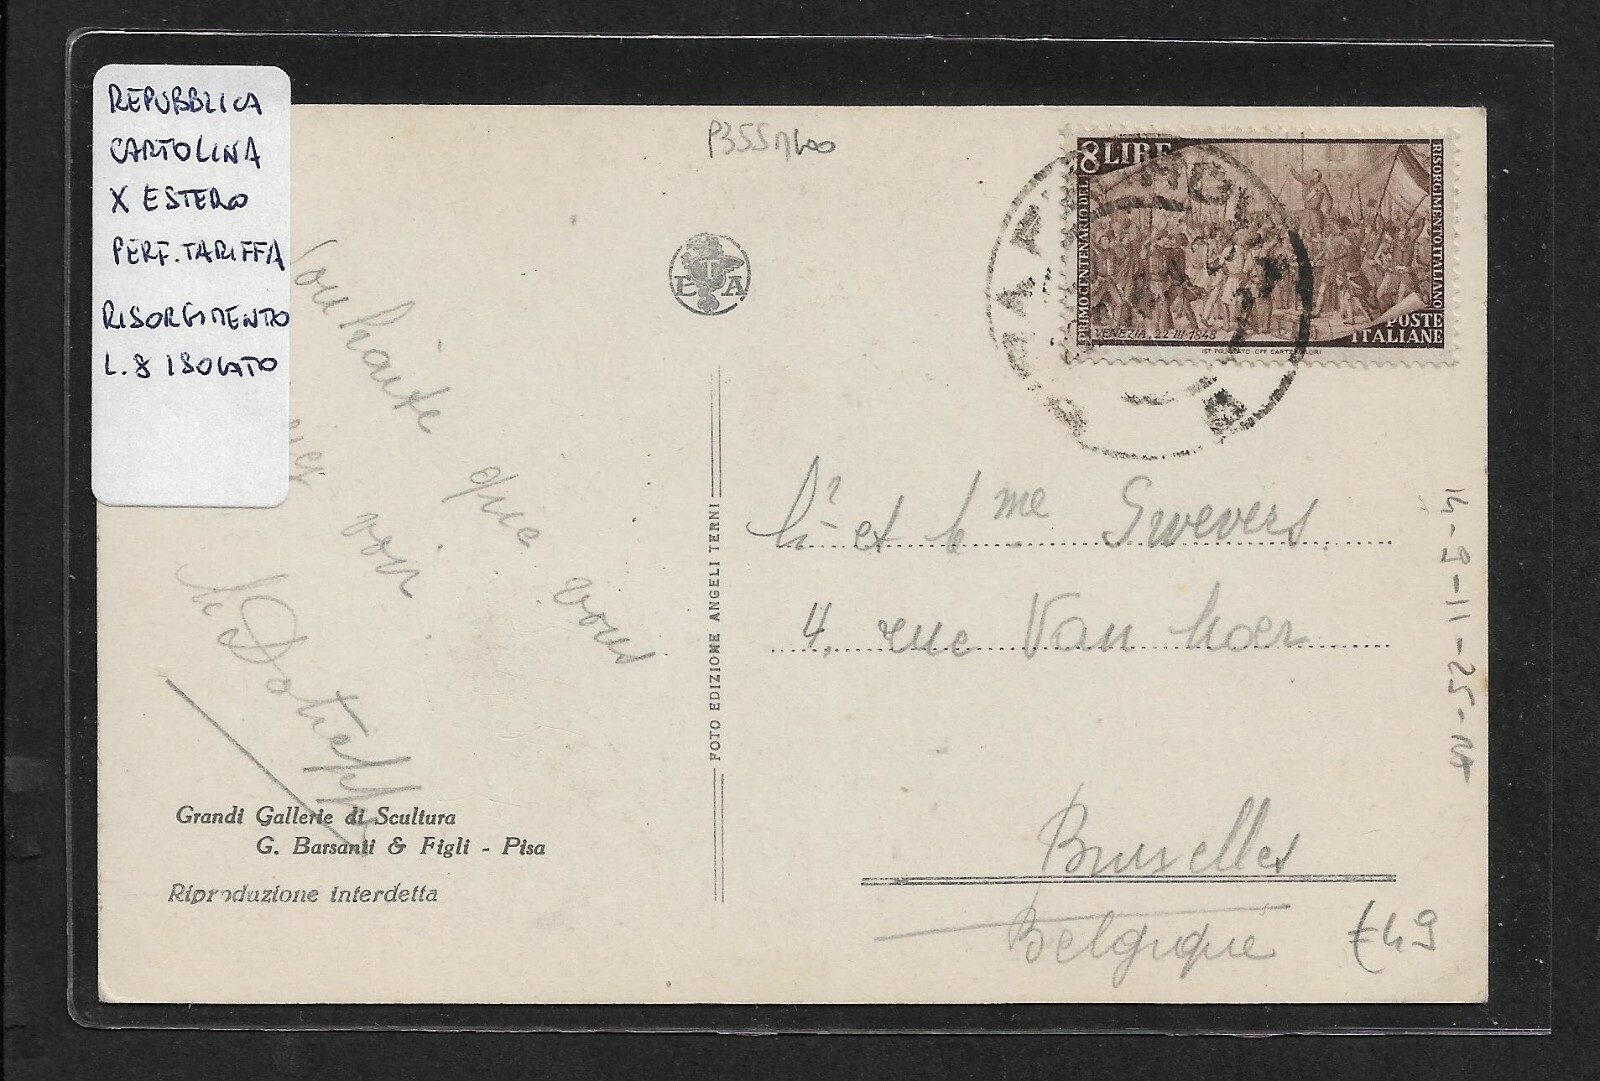 REPUBBLICA
CARTOLINA
X ESTERO
PERF. TARIFFA
RISORGIMENTO
L. 8 ISOLATO
8 LIRE
PRIMO CENTENARIO DEL
RISORGIMENTO ITALIANO
VENEZIA, 22-III-1848
POSTE
ITALIANE
E T A
Souhaite que vous
voir
FOTO EDIZIONE ANGELI TERNI
et me Swevers.
4, rue Van
Bruxelles
Belgique
€49
Grandi Gallerie di Scultura
G. Barsanti & Figli - Pisa
Riproduzione interdetta